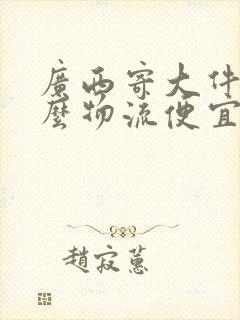 廣西寄大件
麼物流便宜
趙寂蕙